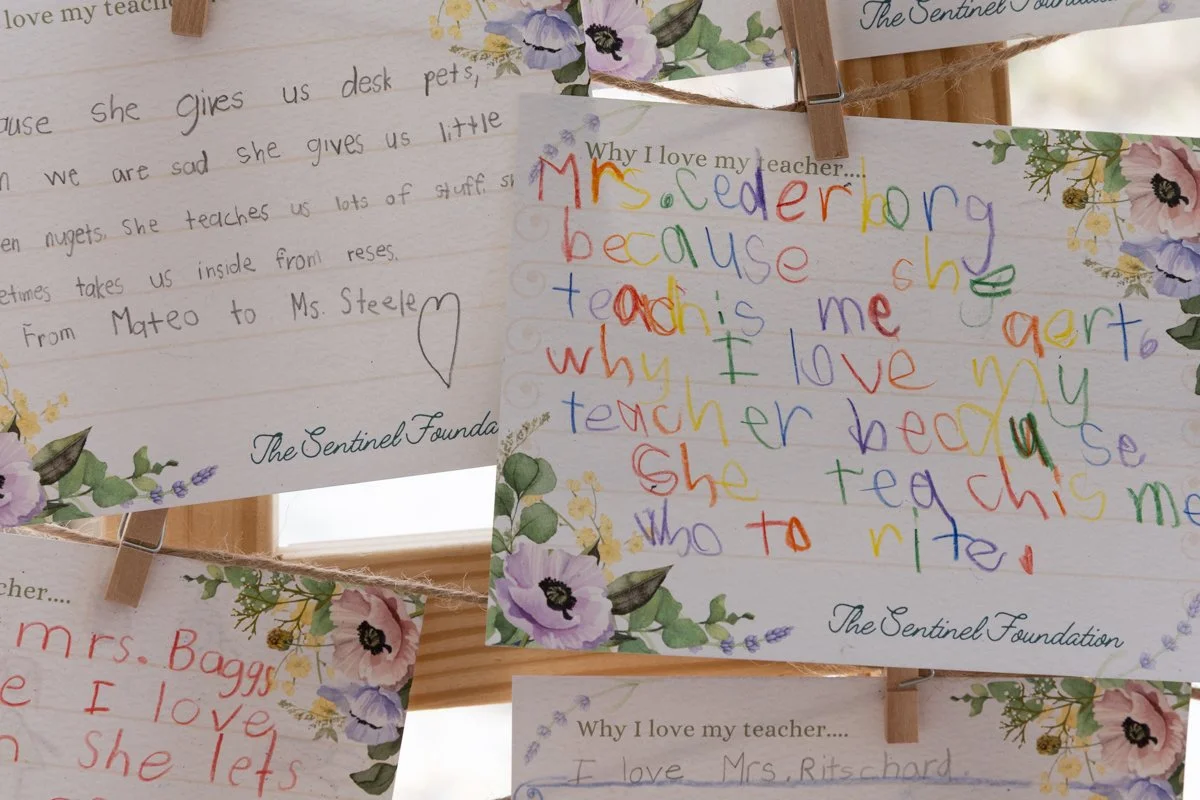 love my teach
ause she gives us desk pets,
n we are sad she gives us little
en nugets. she teaches us lots of stuff. sh
etimes takes us inside from reses.
From Mateo to Ms. Steele
The Sentinel Founda
The Sentinel Foundation
Why I love my teacher....
Mrs. Cederborg
because she
teachis me aert.
why I love my
teacher because
She teachis me
who to rite.
The Sentinel Foundation
cher....
mrs. Baggs
e I love
n She lets
Why I love my teacher....
I love Mrs. Ritschard.